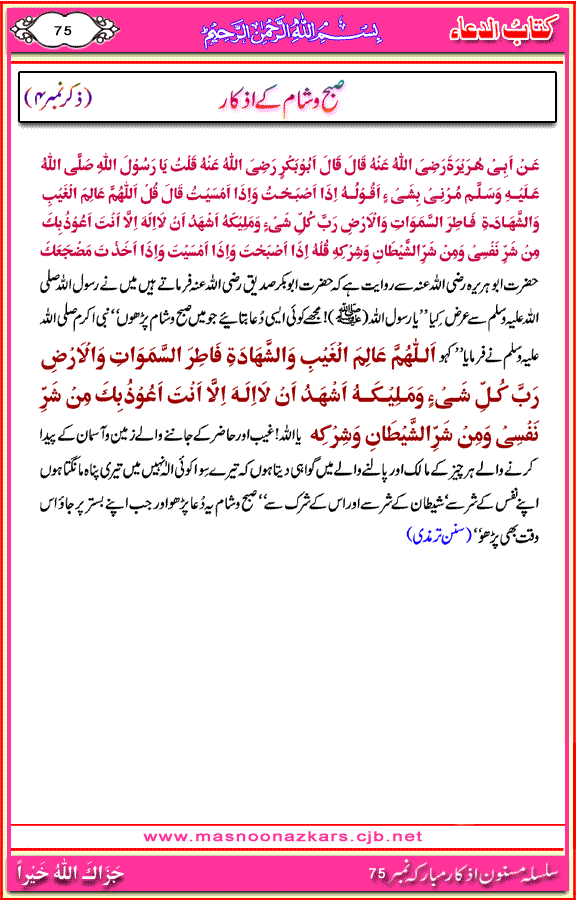 کتابُ الدعاء
بِسْمِ اللہِ الرَّحْمٰنِ الرَّحِیْمِ
75
صبح و شام کے اذکار
(ذکر نمبر ۴)
عَنْ اَبِیْ ھُرَیْرَۃَ رَضِیَ اللہُ عَنْہُ قَالَ قَالَ اَبُوْبَکْرٍ رَضِیَ اللہُ عَنْہُ قُلْتُ یَا رَسُوْلَ اللہِ صَلَّی اللہُ
عَلَیْہِ وَسَلَّم مُرْنِیْ بِشَیْءٍ اَقُوْلُہُ اِذَا اَصْبَحْتُ وَاِذَا اَمْسَیْتُ قَالَ قُلْ اَللّٰھُمَّ عَالِمَ الْغَیْبِ
وَالشَّھَادَۃِ فَاطِرَ السَّمَوَاتِ وَالْاَرْضِ رَبَّ کُلِّ شَیْءٍ وَمَلِیْکَہُ اَشْھَدُ اَنْ لاَاِلٰہَ اِلَّا اَنْتَ اَعُوْذُبِکَ
مِنْ شَرِّ نَفْسِیْ وَمِنْ شَرِّ الشَّیْطَانِ وَشِرْکِہِ قُلْہُ اِذَا اَصْبَحْتَ وَاِذَا اَمْسَیْتَ وَاِذَا اَخَذْتَ مَضْجَعَکَ
حضرت ابو ہریرہ رضی اللہ عنہ سے روایت ہے کہ حضرت ابوبکر صدیق رضی اللہ عنہ فرماتے ہیں میں نے رسول اللہ صلی
اللہ علیہ وسلم سے عرض کیا ’’یا رسول اللہ (ﷺ)! مجھے کوئی ایسی دُعا بتائیے جو میں صبح و شام پڑھوں‘‘ نبی اکرم صلی اللہ
علیہ وسلم نے فرمایا ’’کہو اَللّٰھُمَّ عَالِمَ الْغَیْبِ وَالشَّھَادَۃِ فَاطِرَ السَّمَوَاتِ وَالْاَرْضِ
رَبَّ کُلِّ شَیْءٍ وَمَلِیْکَہُ اَشْھَدُ اَنْ لاَاِلٰہَ اِلَّا اَنْتَ اَعُوْذُبِکَ مِنْ شَرِّ
نَفْسِیْ وَمِنْ شَرِّ الشَّیْطَانِ وَشِرْکِہِ یا اللہ! غیب اور حاضر کے جاننے والے زمین و آسمان کے پیدا
کرنے والے ہر چیز کے مالک اور پالنے والے میں گواہی دیتا ہوں کہ تیرے سِوا کوئی الٰہ نہیں میں تیری پناہ مانگتا ہوں
اپنے نفس کے شر سے‘ شیطان کے شر سے اور اس کے شرک سے‘‘ صبح و شام یہ دُعا پڑھو اور جب اپنے بستر پر جاؤ اس
وقت بھی پڑھو‘‘ (سنن ترمذی)
www.masnoonazkars.cjb.net
سلسلہ مسنون اذکار مبارکہ نمبر 75
جَزَاکَ اللہُ خَیْراً